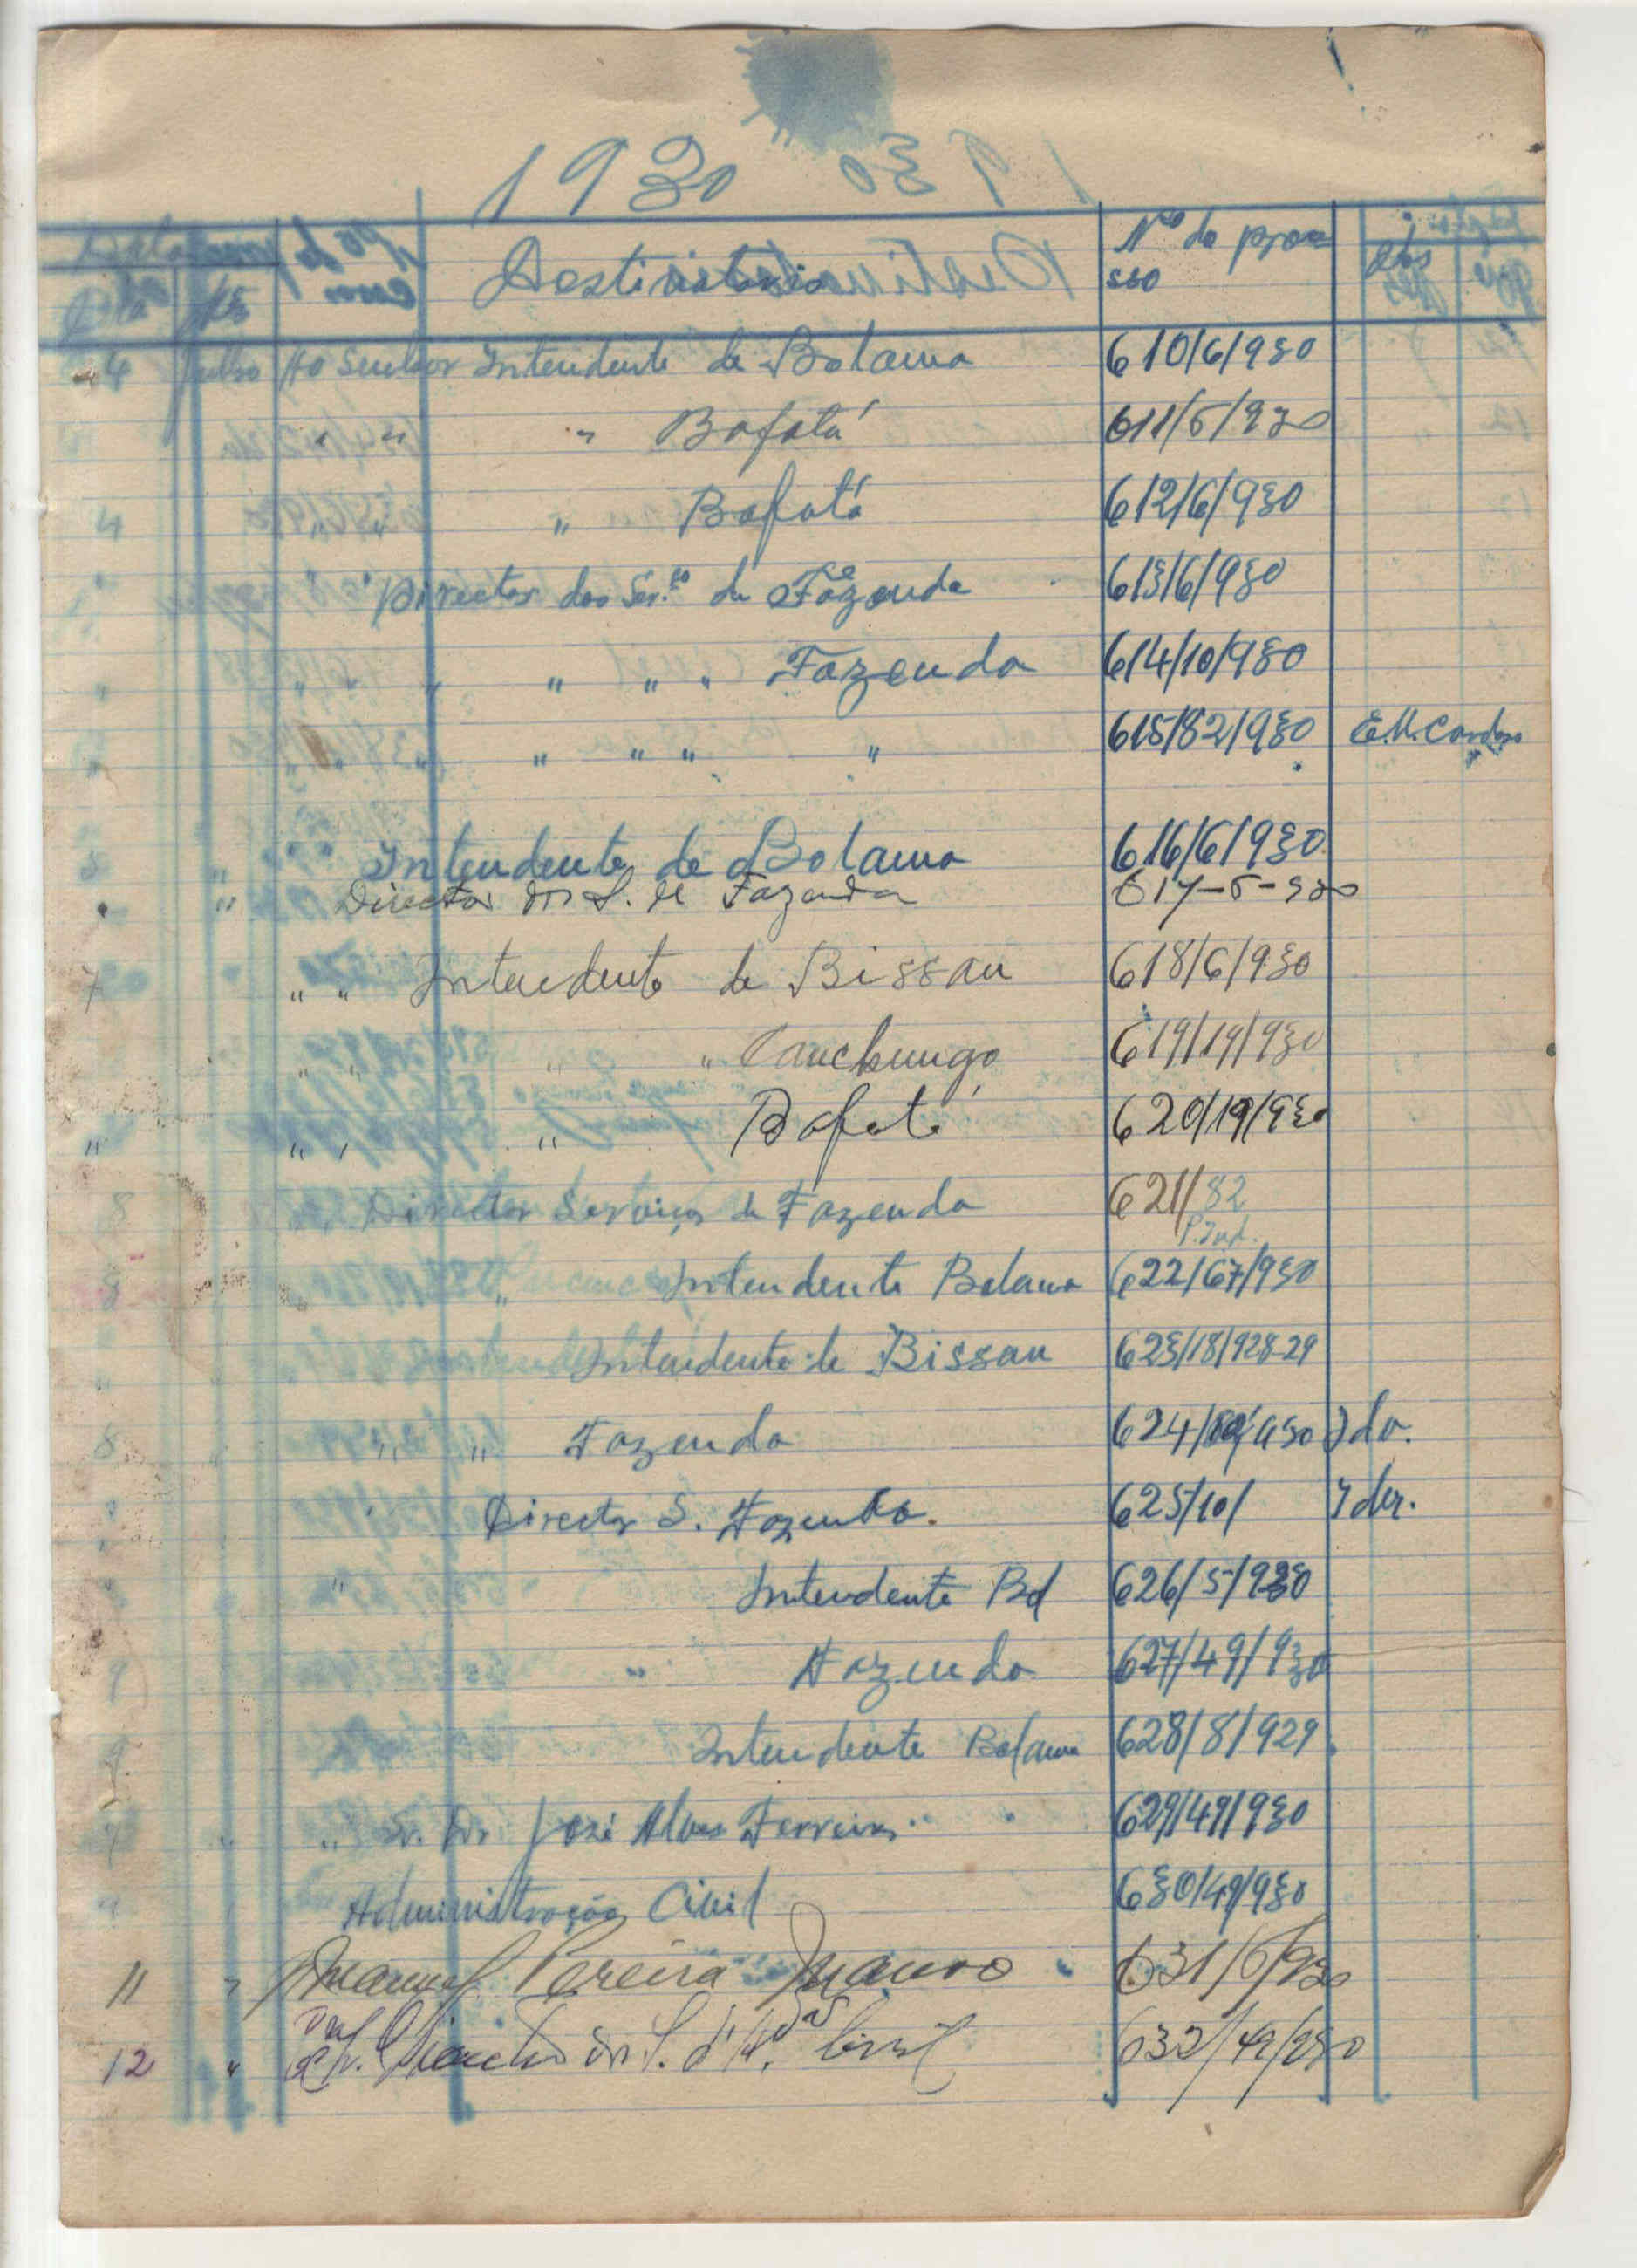 1930
Data
Dia Mês Destinatario Nº do proce
sso Obs
4 Julho Ao Senhor Intendente de Bolama 610/6/930
" " " Bafatá 611/6/930
4 " " " Bafatá 612/6/930
" Director dos Ser.ços de Fazenda 613/6/930
" " " " " " Fazenda 614/10/930
" " " " " 615/82/930 E.M. Cardoso
5 " Intendente de Bolama 616/6/930
" " Director dos S. de Fazenda 617-6-930
7 " " Intendente de Bissau 618/6/930
" " " " Canchungo 619/19/930
" " " " Bafatá 620/19/930
8 Director Serviços de Fazenda 621/82
P. Ind.
8 " Intendente Bolama 622/67/930
" Intendente de Bissau 623/18/928-29
8 " " Fazenda 624/ /930 Ida.
" Director S. Fazenda. 625/10/ Ider.
" Intendente Bd 626/5/930
9 " Fazenda 627/49/930
9 Intendente Bolama 628/8/929
9 " " Sr. Dr. José Alves Ferreira 629/49/930
" Administração Civil 630/49/930
11 " Manuel Pereira Mauro 631/6/930
12 " Civil 632/49/930